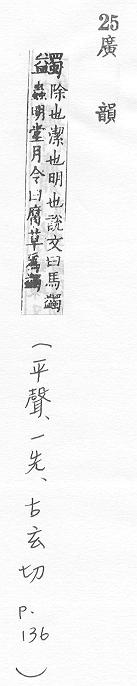 25 廣韻
蠲 除也潔也明也說文曰馬蠲
蟲明堂月令曰腐草爲蠲
(平聲、一先、古玄切 p. 136)